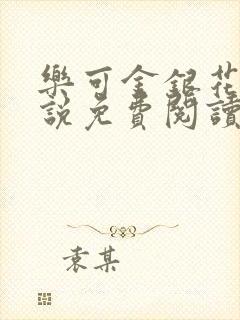 樂可金銀花
說免費閱讀
袁某